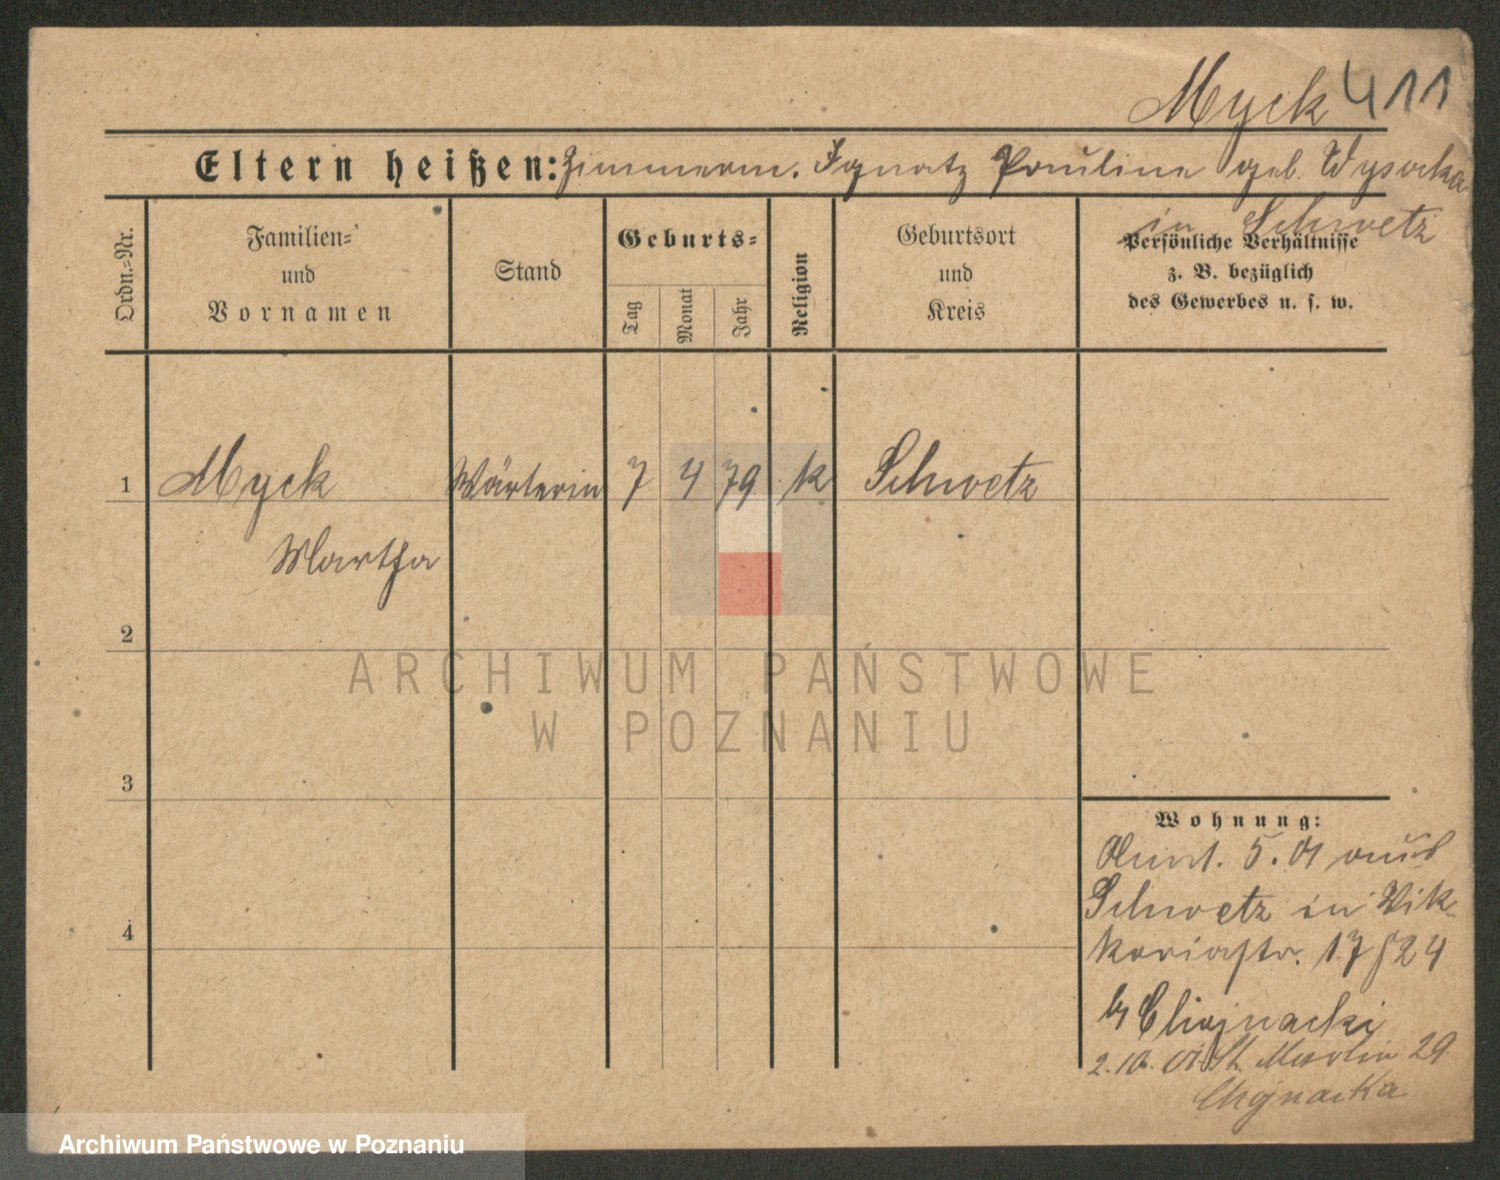 Myck 411
Eltern heißen: Zimmerm. Ignatz Pauline geb. Wysocka
in Schwetz
Ordn.-Nr.
Familien-
und
Vornamen
Stand
Geburts-
Tag
Monat
Jahr
Religion
Geburtsort
und
Kreis
Persönliche Verhältnisse
z. B. bezüglich
des Gewerbes u. s. w.
1 Myck Wärterin 7 4 79 k Schwetz
Martha
2
3
4
Wohnung:
5. 01 aus
Schwetz in Vik-
toriastr. 17 824
by Chojnacki
2. 10. 01 St. Martin 29
Chojnacka
ARCHIWUM PAŃSTWOWE
W POZNANIU
Archiwum Państwowe w Poznaniu